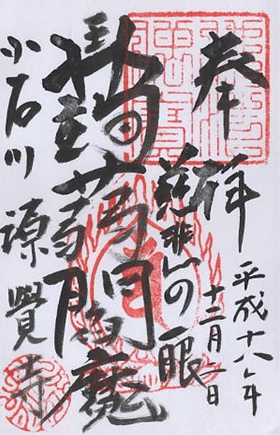 奉拝
平成十八年
十二月 日
慈悲の一眼
蒟蒻閻魔
小石川 源覺寺